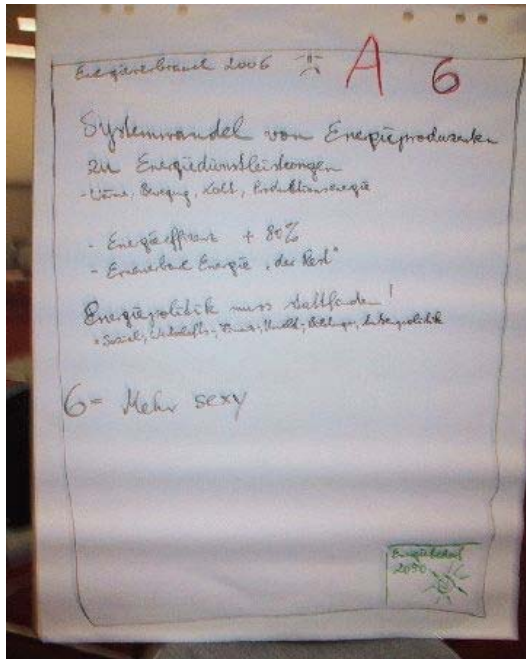 Energieverbrauch 2006 A 6
Systemwandel von Energieproduzenten
zu Energiedienstleistungen
- Wärme, Bewegung, Kälte, Produktionsenergie
- Energieeffizienz + 80%
- Erneuerbare Energie „der Rest"
Energiepolitik muss stattfinden!
Sozial-, Wirtschafts-, Umwelt-, Bildungs-, Aussenpolitik
6 = Mehr sexy
Energiebedarf
2050